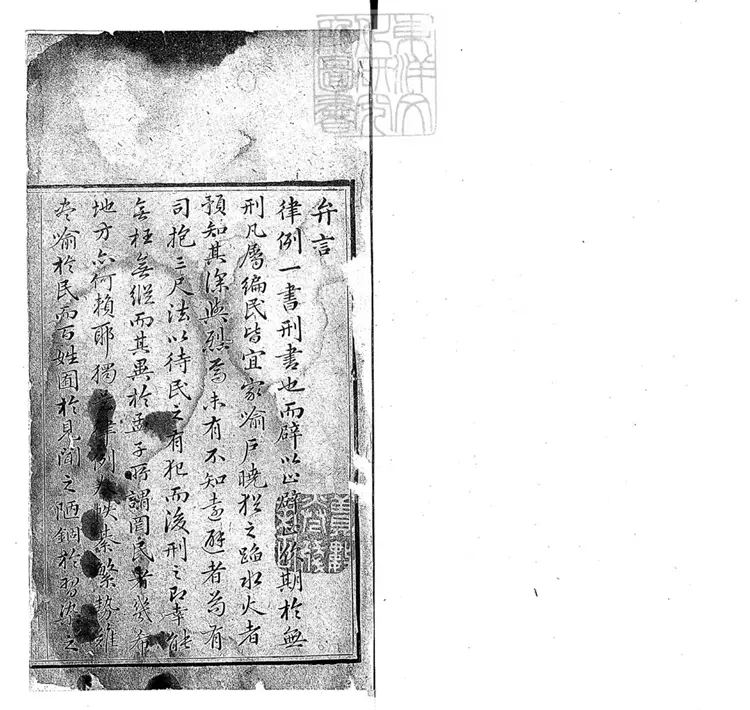 弁言
律例一書刑書也而辟以止辟刑期於無
刑凡屬編民皆宜家喻戶曉猶之蹈水火者
預知其深與烈焉未有不知遠避者苟有
司抱三尺法以待民之有犯而後刑之即幸能
無枉無縱而其異於孟子所謂罔民者幾希
地方亦何賴耶獨是律例卷帙繁勢難
盡喻於民而百姓囿於見聞之陋錮於習染之
東洋文化研究所圖書